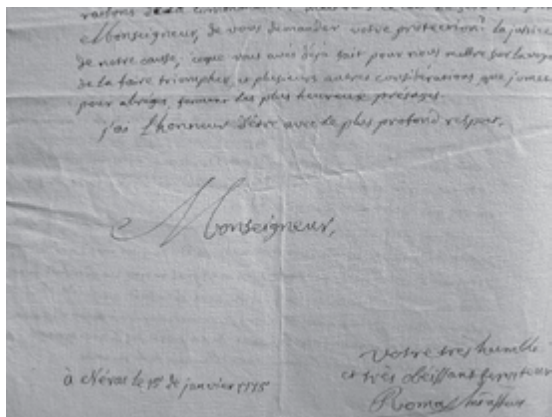 Monseigneur, de vous demander votre protection. la justice
de notre cause, ce que vous avés déjà fait pour nous mettre sur la voye
de la faire triompher, et plusieurs autres considérations que j'omets
pour abréger, forment les plus heureux présages.
j'ai l'honneur d'être avec le plus profond respect,
Monseigneur,
votre très humble
à Nérac le de janvier
et très obéissant serviteur
Romas